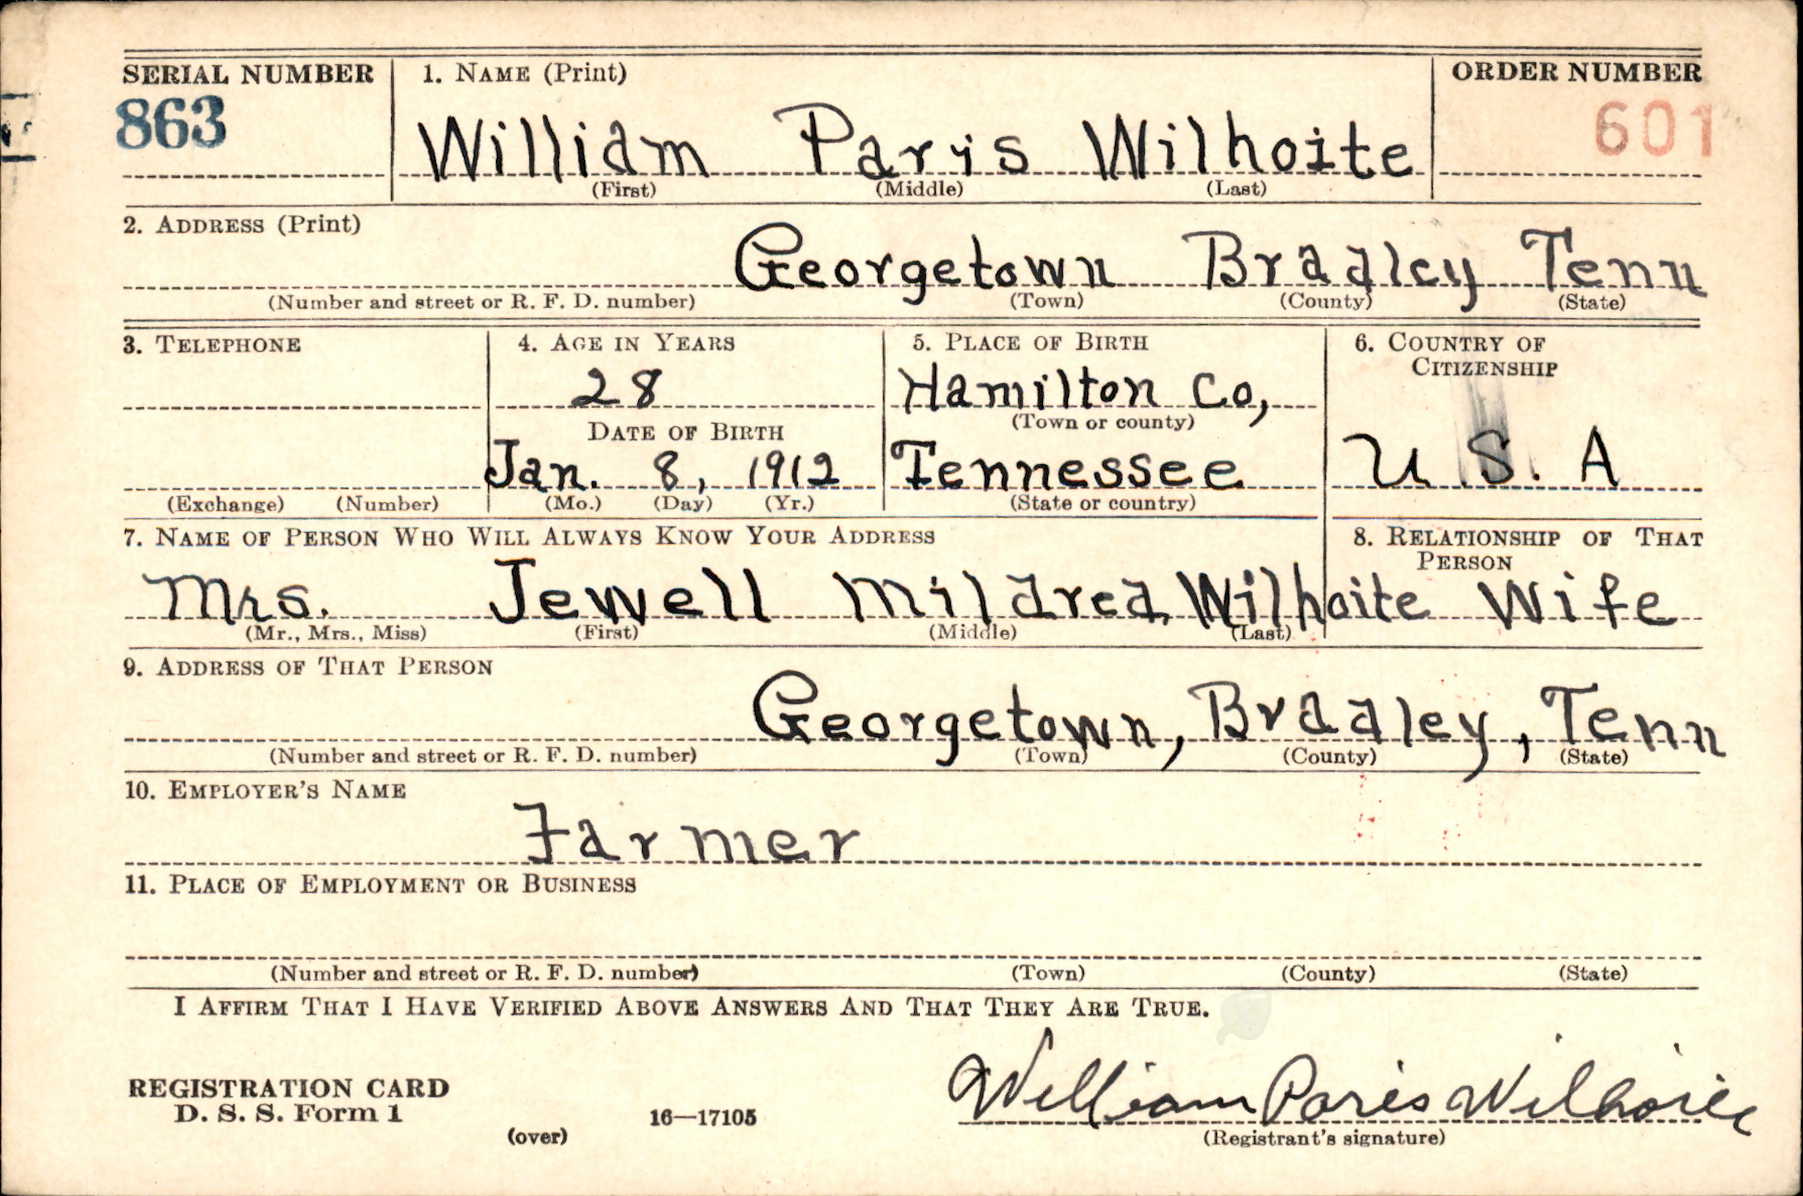 SERIAL NUMBER 1. NAME (Print) ORDER NUMBER
863 William Paris Wilhoite 601
(First) (Middle) (Last)
2. ADDRESS (Print)
Georgetown Bradley Tenn
(Number and street or R. F. D. number) (Town) (County) (State)
3. TELEPHONE 4. AGE IN YEARS 5. PLACE OF BIRTH 6. COUNTRY OF CITIZENSHIP
28 Hamilton Co,
(Town or county)
DATE OF BIRTH
Jan. 8, 1912 Tennessee U.S.A
(Exchange) (Number) (Mo.) (Day) (Yr.) (State or country)
7. NAME OF PERSON WHO WILL ALWAYS KNOW YOUR ADDRESS 8. RELATIONSHIP OF THAT PERSON
Mrs. Jewell Mildred Wilhoite Wife
(Mr., Mrs., Miss) (First) (Middle) (Last)
9. ADDRESS OF THAT PERSON
Georgetown, Bradley, Tenn
(Number and street or R. F. D. number) (Town) (County) (State)
10. EMPLOYER'S NAME
Farmer
11. PLACE OF EMPLOYMENT OR BUSINESS
(Number and street or R. F. D. number) (Town) (County) (State)
I AFFIRM THAT I HAVE VERIFIED ABOVE ANSWERS AND THAT THEY ARE TRUE.
REGISTRATION CARD
D. S. S. Form 1 16—17105 William Paris Wilhoite
(over) (Registrant's signature)